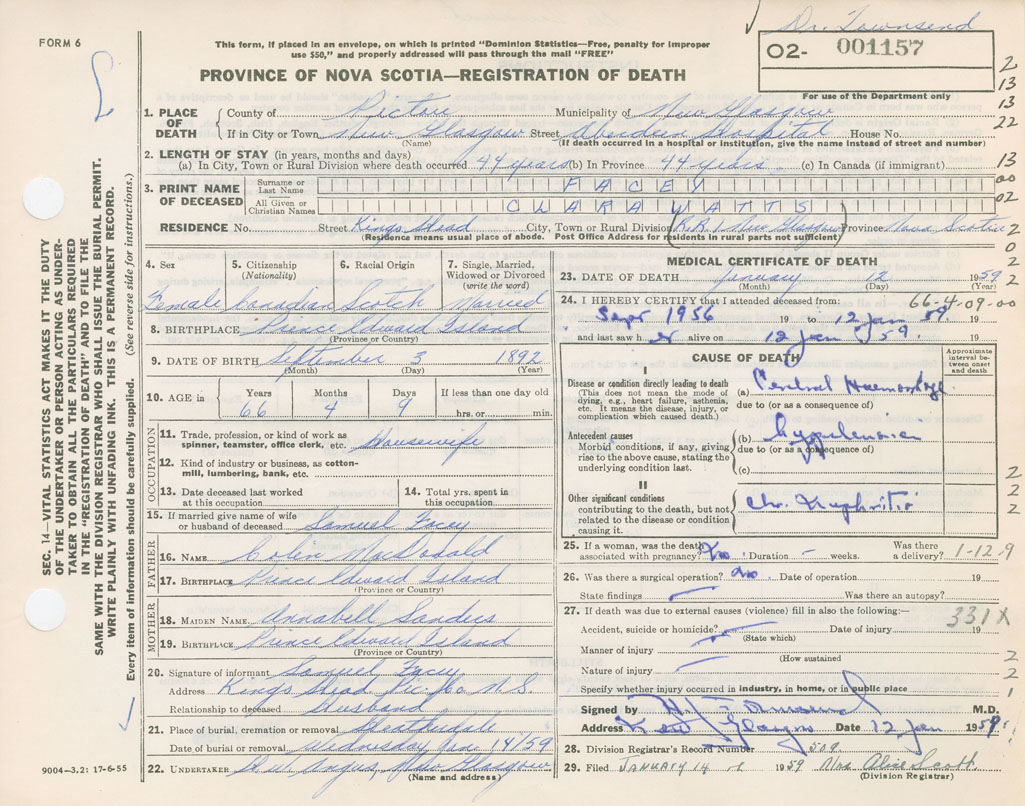 Dr. Townsend
FORM 6
This form, if placed in an envelope, on which is printed "Dominion Statistics—Free, penalty for improper
use $50," and properly addressed will pass through the mail "FREE"
PROVINCE OF NOVA SCOTIA—REGISTRATION OF DEATH
02- 001157
For use of the Department only
2
13
13
22
13
00
02
2
0
2
2
1. PLACE OF DEATH
County of Pictou Municipality of New Glasgow
If in City or Town New Glasgow Street Aberdeen Hospital House No.
(Name) (If death occurred in a hospital or institution, give the name instead of street and number)
2. LENGTH OF STAY (in years, months and days)
(a) In City, Town or Rural Division where death occurred 44 years (b) In Province 44 years (c) In Canada (if immigrant)
3. PRINT NAME OF DECEASED
Surname or Last Name FACEY
All Given or Christian Names CLARA WATTS
RESIDENCE No. Street Kings Head City, Town or Rural Division R.R. 1 New Glasgow Province Nova Scotia
(Residence means usual place of abode. Post Office Address for residents in rural parts not sufficient)
4. Sex 5. Citizenship (Nationality) 6. Racial Origin 7. Single, Married, Widowed or Divorced (write the word)
Female Canadian Scotch Married
8. BIRTHPLACE Prince Edward Island
(Province or Country)
9. DATE OF BIRTH September 3 1892
(Month) (Day) (Year)
10. AGE in Years Months Days If less than one day old
66 4 9 hrs. or min.
OCCUPATION
11. Trade, profession, or kind of work as spinner, teamster, office clerk, etc. Housewife
12. Kind of industry or business, as cotton-mill, lumbering, bank, etc.
13. Date deceased last worked at this occupation
14. Total yrs. spent in this occupation
15. If married give name of wife or husband of deceased Samuel Facey
FATHER
16. NAME Colin MacDonald
17. BIRTHPLACE Prince Edward Island
(Province or Country)
MOTHER
18. MAIDEN NAME Annabell Sanders
19. BIRTHPLACE Prince Edward Island
(Province or Country)
20. Signature of informant Samuel Facey
Address Kings Head Pic. Co N.S.
Relationship to deceased Husband
21. Place of burial, cremation or removal
Date of burial or removal Wednesday Jan 14/59
22. UNDERTAKER Angus, New Glasgow
(Name and address)
MEDICAL CERTIFICATE OF DEATH
23. DATE OF DEATH January 12 1959
(Month) (Day) (Year)
24. I HEREBY CERTIFY that I attended deceased from: 66-4-09-00
Sept 1956 19 to 12 Jan 59. 19
and last saw h er alive on 12 Jan 59. 19
CAUSE OF DEATH
Approximate interval between onset and death
I
Disease or condition directly leading to death
(This does not mean the mode of dying, e.g., heart failure, asthenia, etc. It means the disease, injury, or complication which caused death.)
(a) Cerebral Haemorrhage
due to (or as a consequence of)
Antecedent causes
Morbid conditions, if any, giving rise to the above cause, stating the underlying condition last.
(b) hypertension
due to (or as a consequence of)
(c)
II
Other significant conditions
contributing to the death, but not related to the disease or condition causing it.
Chr. Nephritis
2
2
2
25. If a woman, was the death associated with pregnancy? No. Duration – weeks. Was there a delivery? 1-12-9
26. Was there a surgical operation? No. Date of operation 19
State findings Was there an autopsy?
27. If death was due to external causes (violence) fill in also the following:— 331X
Accident, suicide or homicide? Date of injury 19
(State which)
Manner of injury
(How sustained
Nature of injury
Specify whether injury occurred in industry, in home, or in public place
2
2
1
Signed by Townsend M.D.
Address New Glasgow Date 12 Jan 1959.
28. Division Registrar's Record Number 509
29. Filed JANUARY 14 1959 Mrs Alice Scott
(Division Registrar)
SEC. 14—VITAL STATISTICS ACT MAKES IT THE DUTY
OF THE UNDERTAKER OR PERSON ACTING AS UNDER-
TAKER TO OBTAIN ALL THE PARTICULARS REQUIRED
IN THE "REGISTRATION OF DEATH" AND TO FILE THE
SAME WITH THE DIVISION REGISTRAR WHO SHALL ISSUE THE BURIAL PERMIT.
WRITE PLAINLY WITH UNFADING INK. THIS IS A PERMANENT RECORD.
Every item of information should be carefully supplied. (See reverse side for instructions.)
9004-3.2: 17-6-55